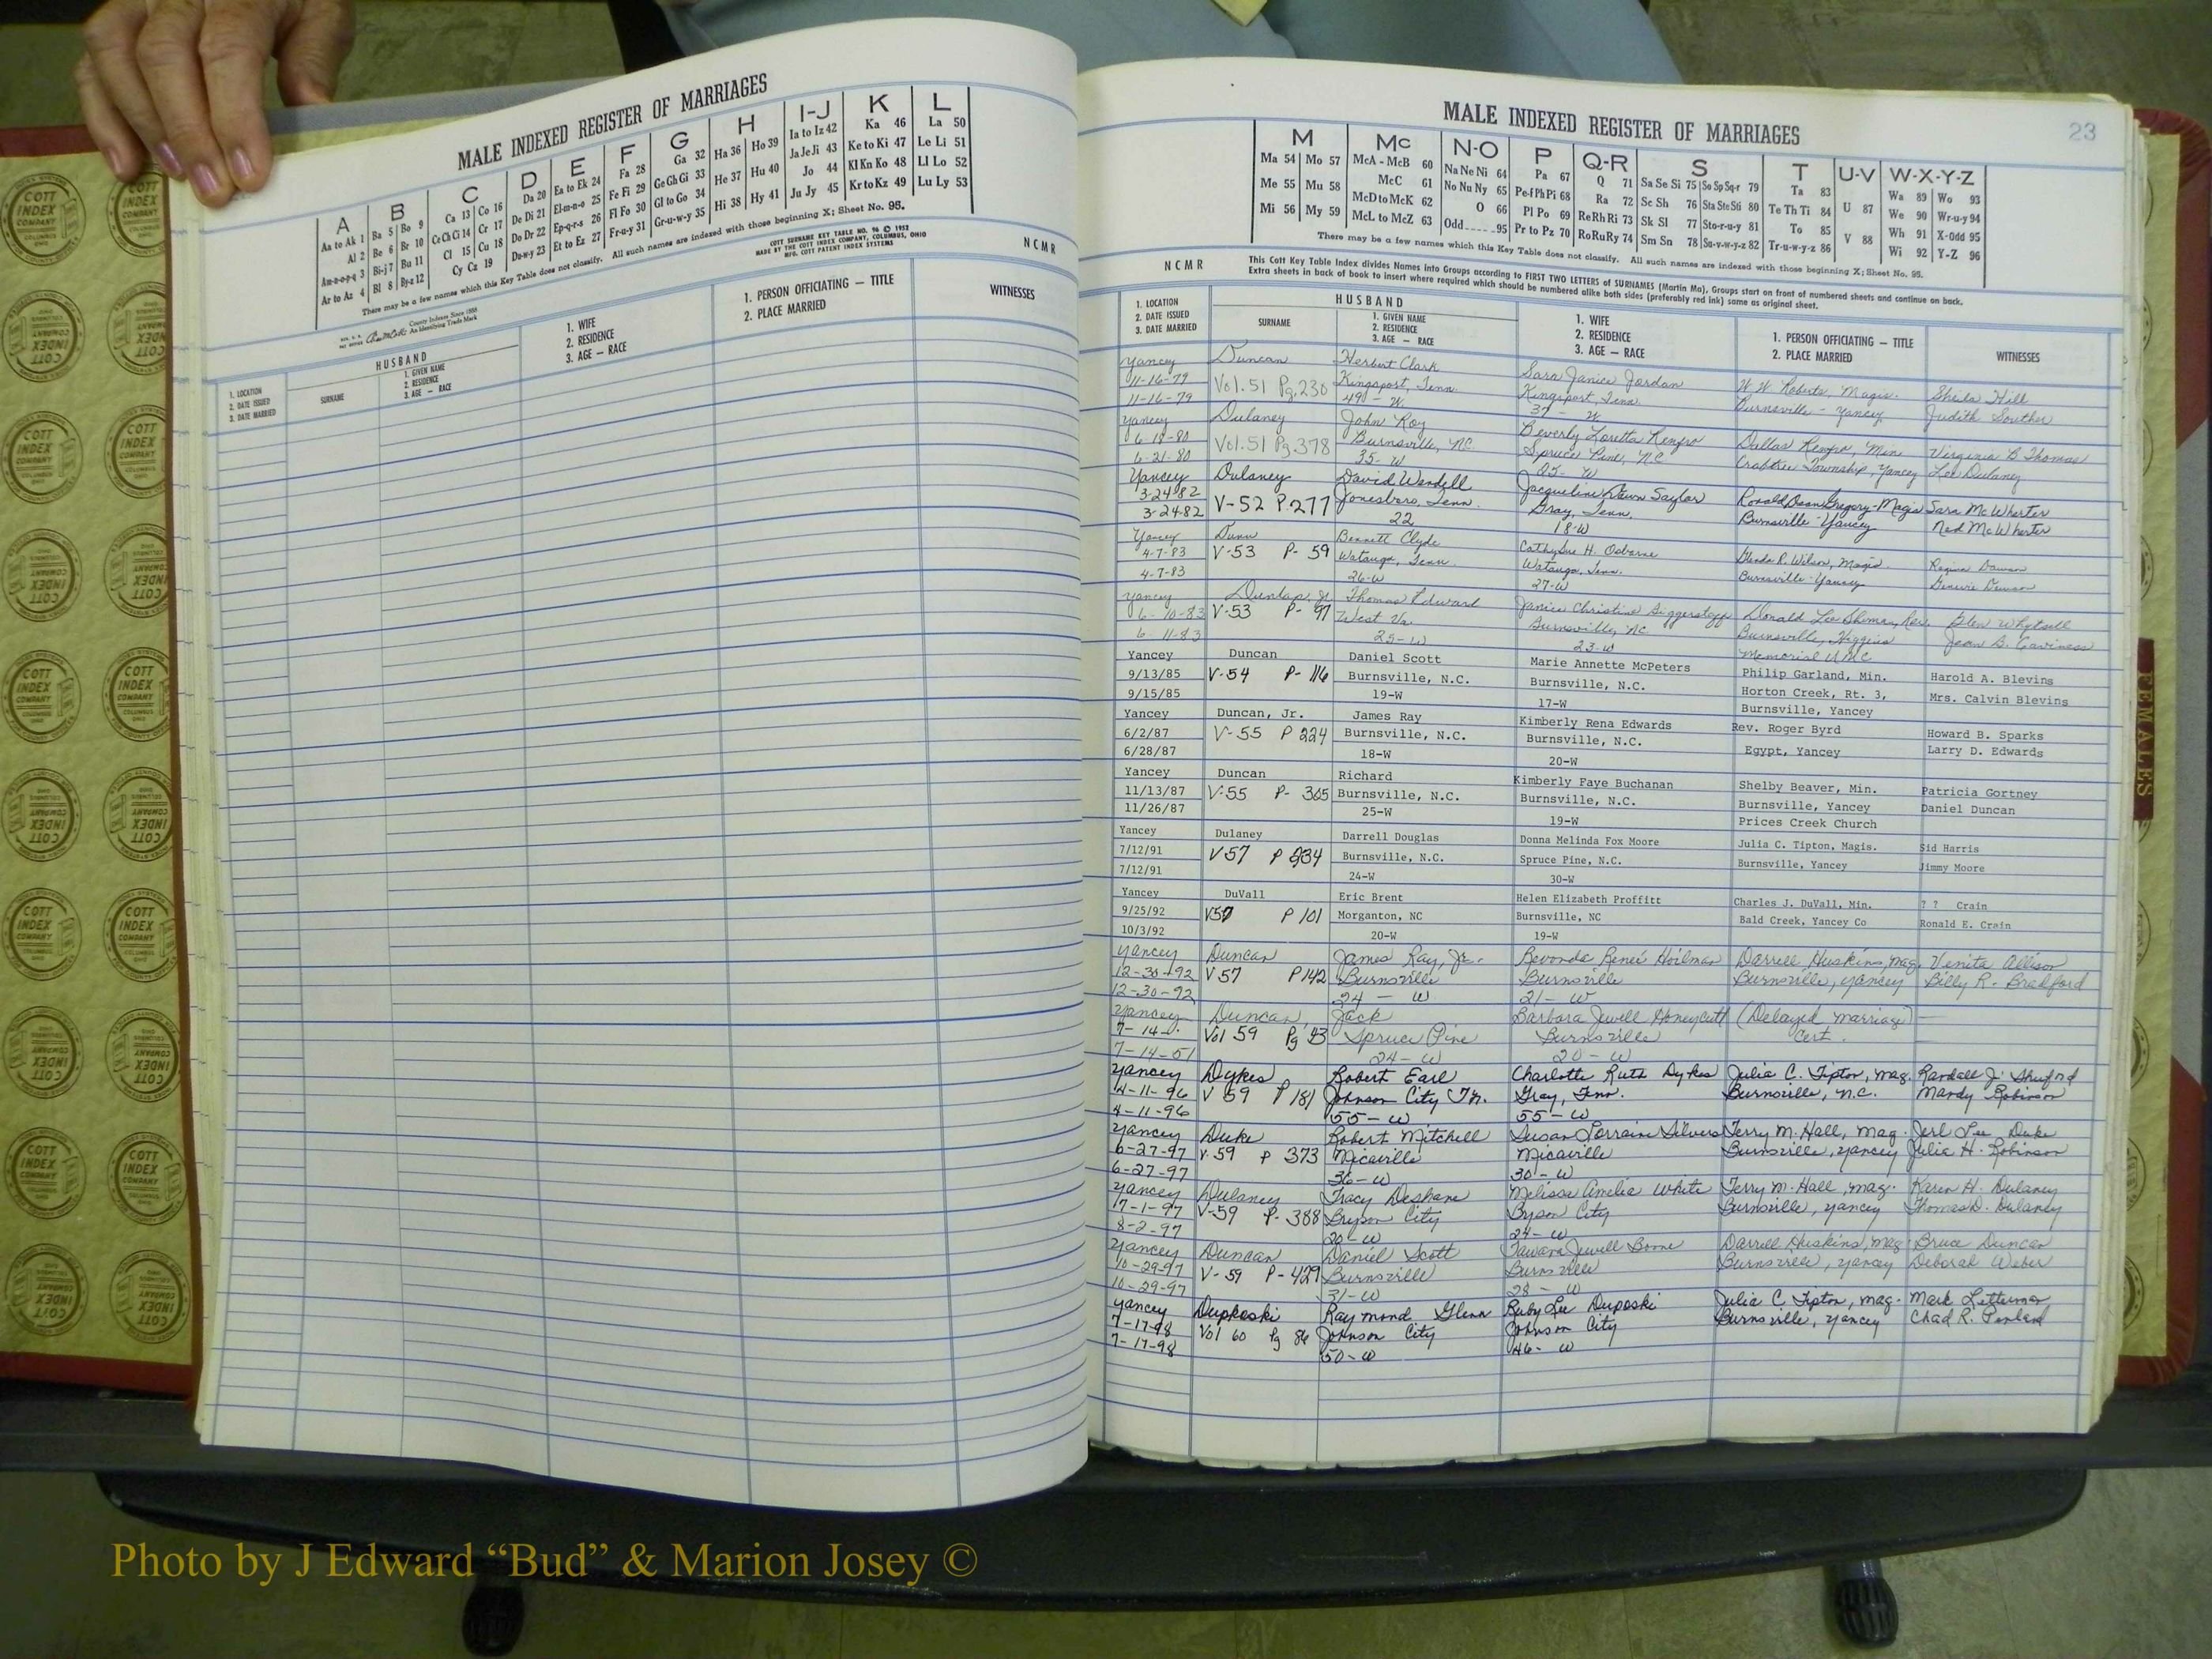 MALE INDEXED REGISTER OF MARRIAGES
A B C D E F G H I-J K L
Aa to Ak 1 Ba 5 Bo 9 Ca 13 Co 16 Da 20 Ea to Ek 24 Fa 28 Ga 32 Ha 36 Ho 39 Ia to Iz 42 Ka 46 La 50
Al 2 Be 6 Br 10 Ce Ch Ci 14 Cr 17 De Di 21 El-m-n-o 25 Fe Fi 29 Ge Gh Gi 33 He 37 Hu 40 Ja Je Ji 43 Ke to Ki 47 Le Li 51
Am-n-o-p-q 3 Bi-j 7 Bu 11 Cl 15 Cu 18 Do Dr 22 Ep-q-r-s 26 Fl Fo 30 Gl to Go 34 Hi 38 Hy 41 Jo 44 Kl Kn Ko 48 Ll Lo 52
Ar to Az 4 Bl 8 By-z 12 Cy Cz 19 Du-w-y 23 Et to Ez 27 Fr-u-y 31 Gr-u-w-y 35 Ju Jy 45 Kr to Kz 49 Lu Ly 53
There may be a few names which this Key Table does not classify. All such names are indexed with those beginning X; Sheet No. 95.
COTT SURNAME KEY TABLE NO. 96 © 1952
MADE BY THE COTT INDEX COMPANY, COLUMBUS, OHIO
MFG. COTT PATENT INDEX SYSTEMS
NCMR
County Indexes Since 1888
An Identifying Trade Mark
HUSBAND
1. LOCATION
2. DATE ISSUED
3. DATE MARRIED
SURNAME
1. GIVEN NAME
2. RESIDENCE
3. AGE — RACE
1. WIFE
2. RESIDENCE
3. AGE — RACE
1. PERSON OFFICIATING — TITLE
2. PLACE MARRIED
WITNESSES
MALE INDEXED REGISTER OF MARRIAGES
23
M Mc N-O P Q-R S T U-V W-X-Y-Z
Ma 54 Mo 57 McA - McB 60 Na Ne Ni 64 Pa 67 Q 71 Sa Se Si 75 So Sp Sq-r 79 Ta 83 U 87 Wa 89 Wo 93
Me 55 Mu 58 McC 61 No Nu Ny 65 Pe-f Ph Pi 68 Ra 72 Sc Sh 76 Sta Ste Sti 80 Te Th Ti 84 V 88 We 90 Wr-u-y 94
Mi 56 My 59 McD to McK 62 O 66 Pl Po 69 Re Rh Ri 73 Sk Sl 77 Sto-r-u-y 81 To 85 Wh 91 X-Odd 95
McL to McZ 63 Odd 95 Pr to Pz 70 Ro Ru Ry 74 Sm Sn 78 Su-v-w-y-z 82 Tr-u-w-y-z 86 Wi 92 Y-Z 96
There may be a few names which this Key Table does not classify. All such names are indexed with those beginning X; Sheet No. 95.
NCMR
This Cott Key Table Index divides Names into Groups according to FIRST TWO LETTERS of SURNAMES (Martin Ma), Groups start on front of numbered sheets and continue on back.
Extra sheets in back of book to insert where required which should be numbered alike both sides (preferably red ink) same as original sheet.
HUSBAND
1. LOCATION
2. DATE ISSUED
3. DATE MARRIED
SURNAME
1. GIVEN NAME
2. RESIDENCE
3. AGE — RACE
1. WIFE
2. RESIDENCE
3. AGE — RACE
1. PERSON OFFICIATING — TITLE
2. PLACE MARRIED
WITNESSES
Yancey Duncan Herbert Clark Sara Janice Jordan W.W. Roberts, Magis. Sheila Hill
11-16-79 Vol. 51 Pg. 230 Kingsport, Tenn. Kingsport, Tenn. Burnsville - Yancey Judith Souther
11-16-79 49 - W 37 - W
Yancey Dulaney John Roy Beverly Loretta Renfro Dallas Renfro, Min. Virginia B. Thomas
6-18-80 Vol. 51 Pg. 378 Burnsville, NC Spruce Pine, NC Crabtree Township, Yancey Lee Dulaney
6-21-80 35- W 25- W
Yancey Dulaney David Wendell Jacqueline Dawn Saylor Ronald Dean Gregory-Magis Sara McWherter
3-24-82 V-52 P.277 Jonesboro, Tenn. Gray, Tenn. Burnsville-Yancey Ned McWherter
3-24-82 22 18-W
Yancey Dunn Bennett Clyde Cathylne H. Osborne Wilson, Magis
4-7-83 V-53 P- 59 Watauga, Tenn. Watauga, Tenn. Burnsville-Yancey
4-7-83 26-W 27-W
Yancey Dunlap, Jr. Thomas Edward Janice Christine Biggerstaff Donald Lee Rev. Glen Whytsell
6-10-83 V-53 P- 97 West Va. Burnsville, NC. Burnsville, Higgins Jean S. Caviness
6-11-83 25-W 23-W Memorial UMC
Yancey Duncan Daniel Scott Marie Annette McPeters Philip Garland, Min. Harold A. Blevins
9/13/85 V-54 P- 116 Burnsville, N.C. Burnsville, N.C. Horton Creek, Rt. 3, Mrs. Calvin Blevins
9/15/85 19-W 17-W Burnsville, Yancey
Yancey Duncan, Jr. James Ray Kimberly Rena Edwards Rev. Roger Byrd Howard B. Sparks
6/2/87 V-55 P 224 Burnsville, N.C. Burnsville, N.C. Egypt, Yancey Larry D. Edwards
6/28/87 18-W 20-W
Yancey Duncan Richard Kimberly Faye Buchanan Shelby Beaver, Min. Patricia Gortney
11/13/87 V-55 P- 305 Burnsville, N.C. Burnsville, N.C. Burnsville, Yancey Daniel Duncan
11/26/87 25-W 19-W Prices Creek Church
Yancey Dulaney Darrell Douglas Donna Melinda Fox Moore Julia C. Tipton, Magis. Sid Harris
7/12/91 V57 P 234 Burnsville, N.C. Spruce Pine, N.C. Burnsville, Yancey Jimmy Moore
7/12/91 24-W 30-W
Yancey DuVall Eric Brent Helen Elizabeth Proffitt Charles J. DuVall, Min. ? ? Crain
9/25/92 V57 P 101 Morganton, NC Burnsville, NC Bald Creek, Yancey Co Ronald E. Crain
10/3/92 20-W 19-W
Yancey Duncan James Ray, Jr. Revonda Reneé Hoilman Darrell Huskins, mag. Venita Allison
12-30-92 V 57 P142 Burnsville Burnsville Burnsville, Yancey Billy R. Bradford
12-30-92 24 - W 21- W
Yancey Duncan, Jack Barbara Jewell Honeycutt (Delayed marriage)
7-14- Vol 59 Pg 43 Spruce Pine Burnsville Cert.
7-14-51 24- W 20- W
Yancey Dykes Robert Earl Charlotte Ruth Dykes Julia C. Tipton, mag. Randall J. Shuford
4-11-96 V 59 P 181 Johnson City Tn. Gray, Tenn. Burnsville, N.C. Mandy Robinson
4-11-96 55-W 55-W
Yancey Duke Robert Mitchell Susan Lorraine Silvers Terry M. Hall, mag. Jerl Lee Duke
6-27-97 V.59 P 373 Micaville Micaville Burnsville, Yancey Julia H. Robinson
6-27-97 36-W 30-W
Yancey Dulaney Tracy Deshane Melissa Amelia White Terry M. Hall, mag. Karen H. Dulaney
7-1-97 V-59 P-388 Bryson City Bryson City Burnsville, Yancey Thomas D. Dulaney
8-2-97 20-W 24-W
Yancey Duncan Daniel Scott Tawana Jewell Boone Darrell Huskins, mag. Bruce Duncan
10-29-97 V-59 P-429 Burnsville Burnsville Burnsville, Yancey Deborah Weber
10-29-97 31-W 28-W
Yancey Dupkoski Raymond Glenn Ruby Lee Duposki Julia C. Tipton, mag. Mark Letterman
7-17-98 Vol 60 Pg 86 Johnson City Johnson City Burnsville, Yancey Chad R. Penland
7-17-98 50-W 46-W
FEMALES
COTT INDEX COMPANY
Photo by J Edward “Bud” & Marion Josey ©